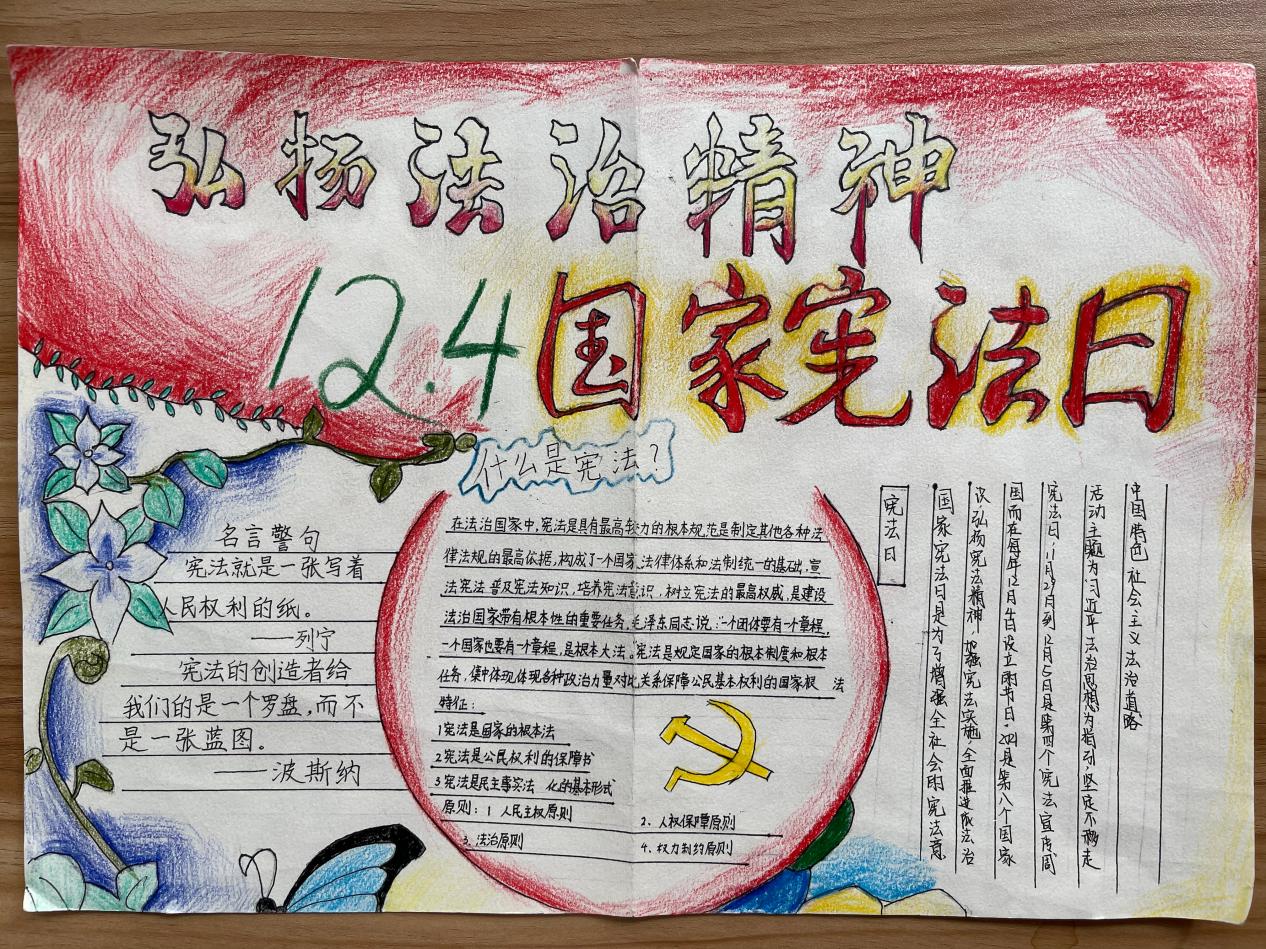 弘扬法治精神
12.4国家宪法日
什么是宪法?
名言警句
宪法就是一张写着
人民权利的纸。
——列宁
宪法的创造者给
我们的是一个罗盘,而不
是一张蓝图。
——波斯纳
在法治国家中,宪法是具有最高效力的根本规范是制定其他各种法
律法规的最高依据,构成了一个国家法律体系和法制统一的基础,宣
法宪法 普及宪法知识,培养宪法意识,树立宪法的最高权威,是建设
法治国家带有根本性的重要任务,毛泽东同志说:"一个团体要有一个章程,
一个国家也要有一个章程,是根本大法。宪法是规定国家的根本制度和根本
任务,集中体现体现各种政治力量对比关系保障公民基本权利的国家根 法
特征:
1宪法是国家的根本法
2宪法是公民权利的保障书
3宪法是民主事实法 化的基本形式
原则:1 人民主权原则
2、人权保障原则
3、法治原则
4、权力制约原则
宪法日
国家宪法日是为了增强全社会的宪法意
识,弘扬宪法精神,加强宪法实施,全面推进依法治
国而在每年12月4日设立的节日,今年是第八个国家
宪法日,11月29日到12月5日是第四个宪法宣传周
活动主题为习近平法治思想为指引,坚定不移走
中国特色 社会主义法治道路